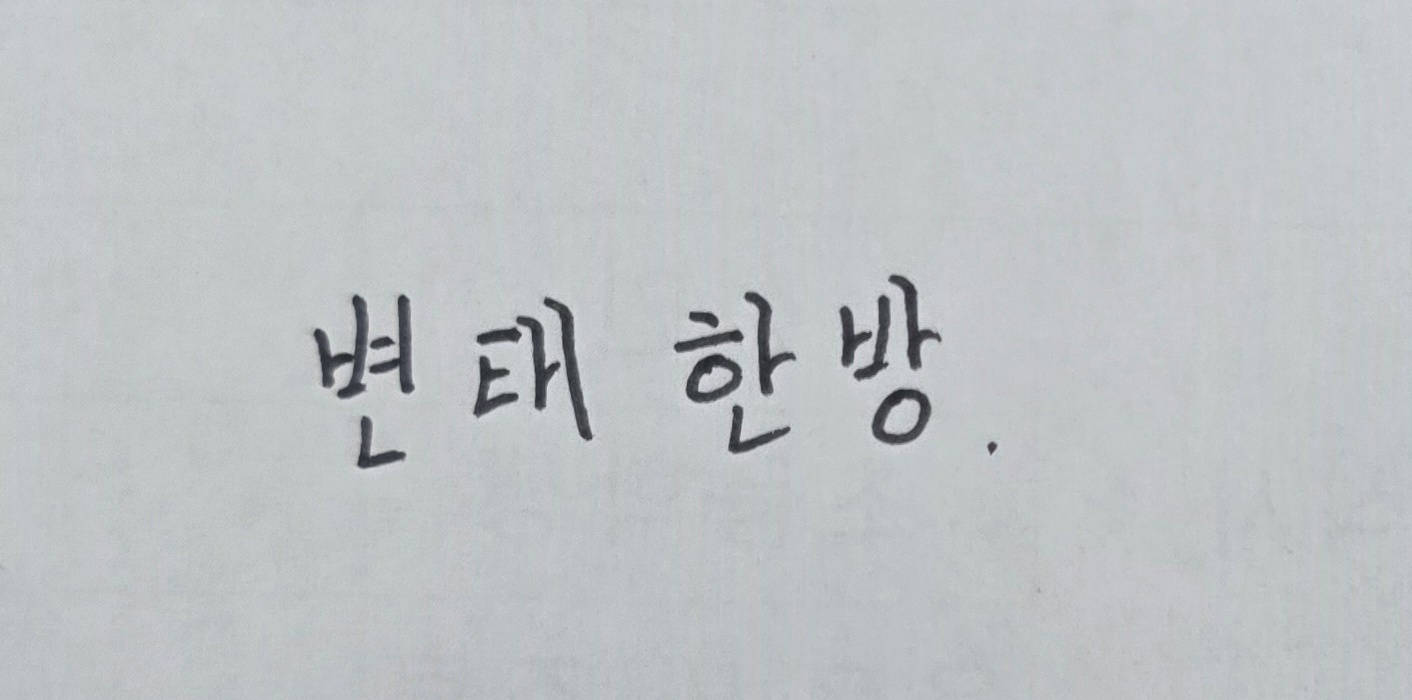 변태 한방.